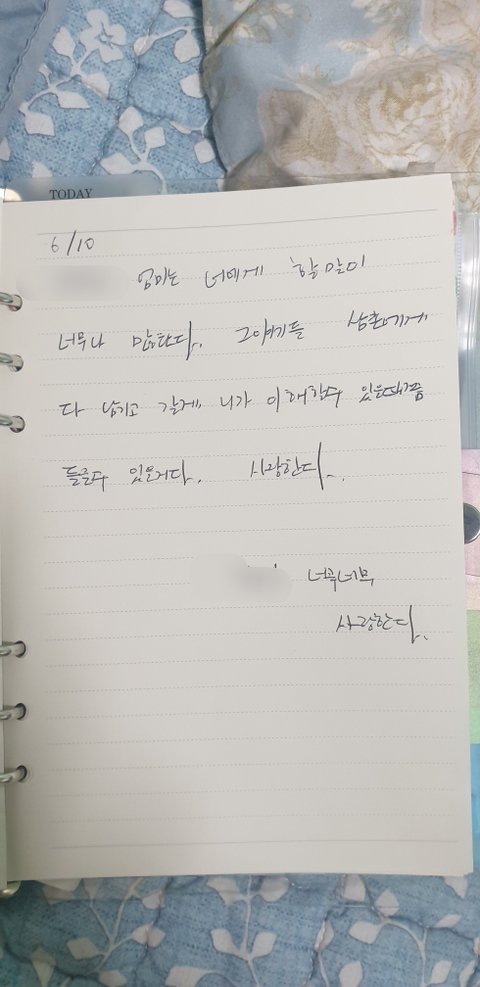 TODAY
6/10
엄마는 너에게 할말이
너무나 많탄다. 그이야기들 삼촌에게
다 남기고 갈게. 니가 이해할수 있을때쯤
들을수 있을거다. 사랑한다..
너무너무
사랑한다..